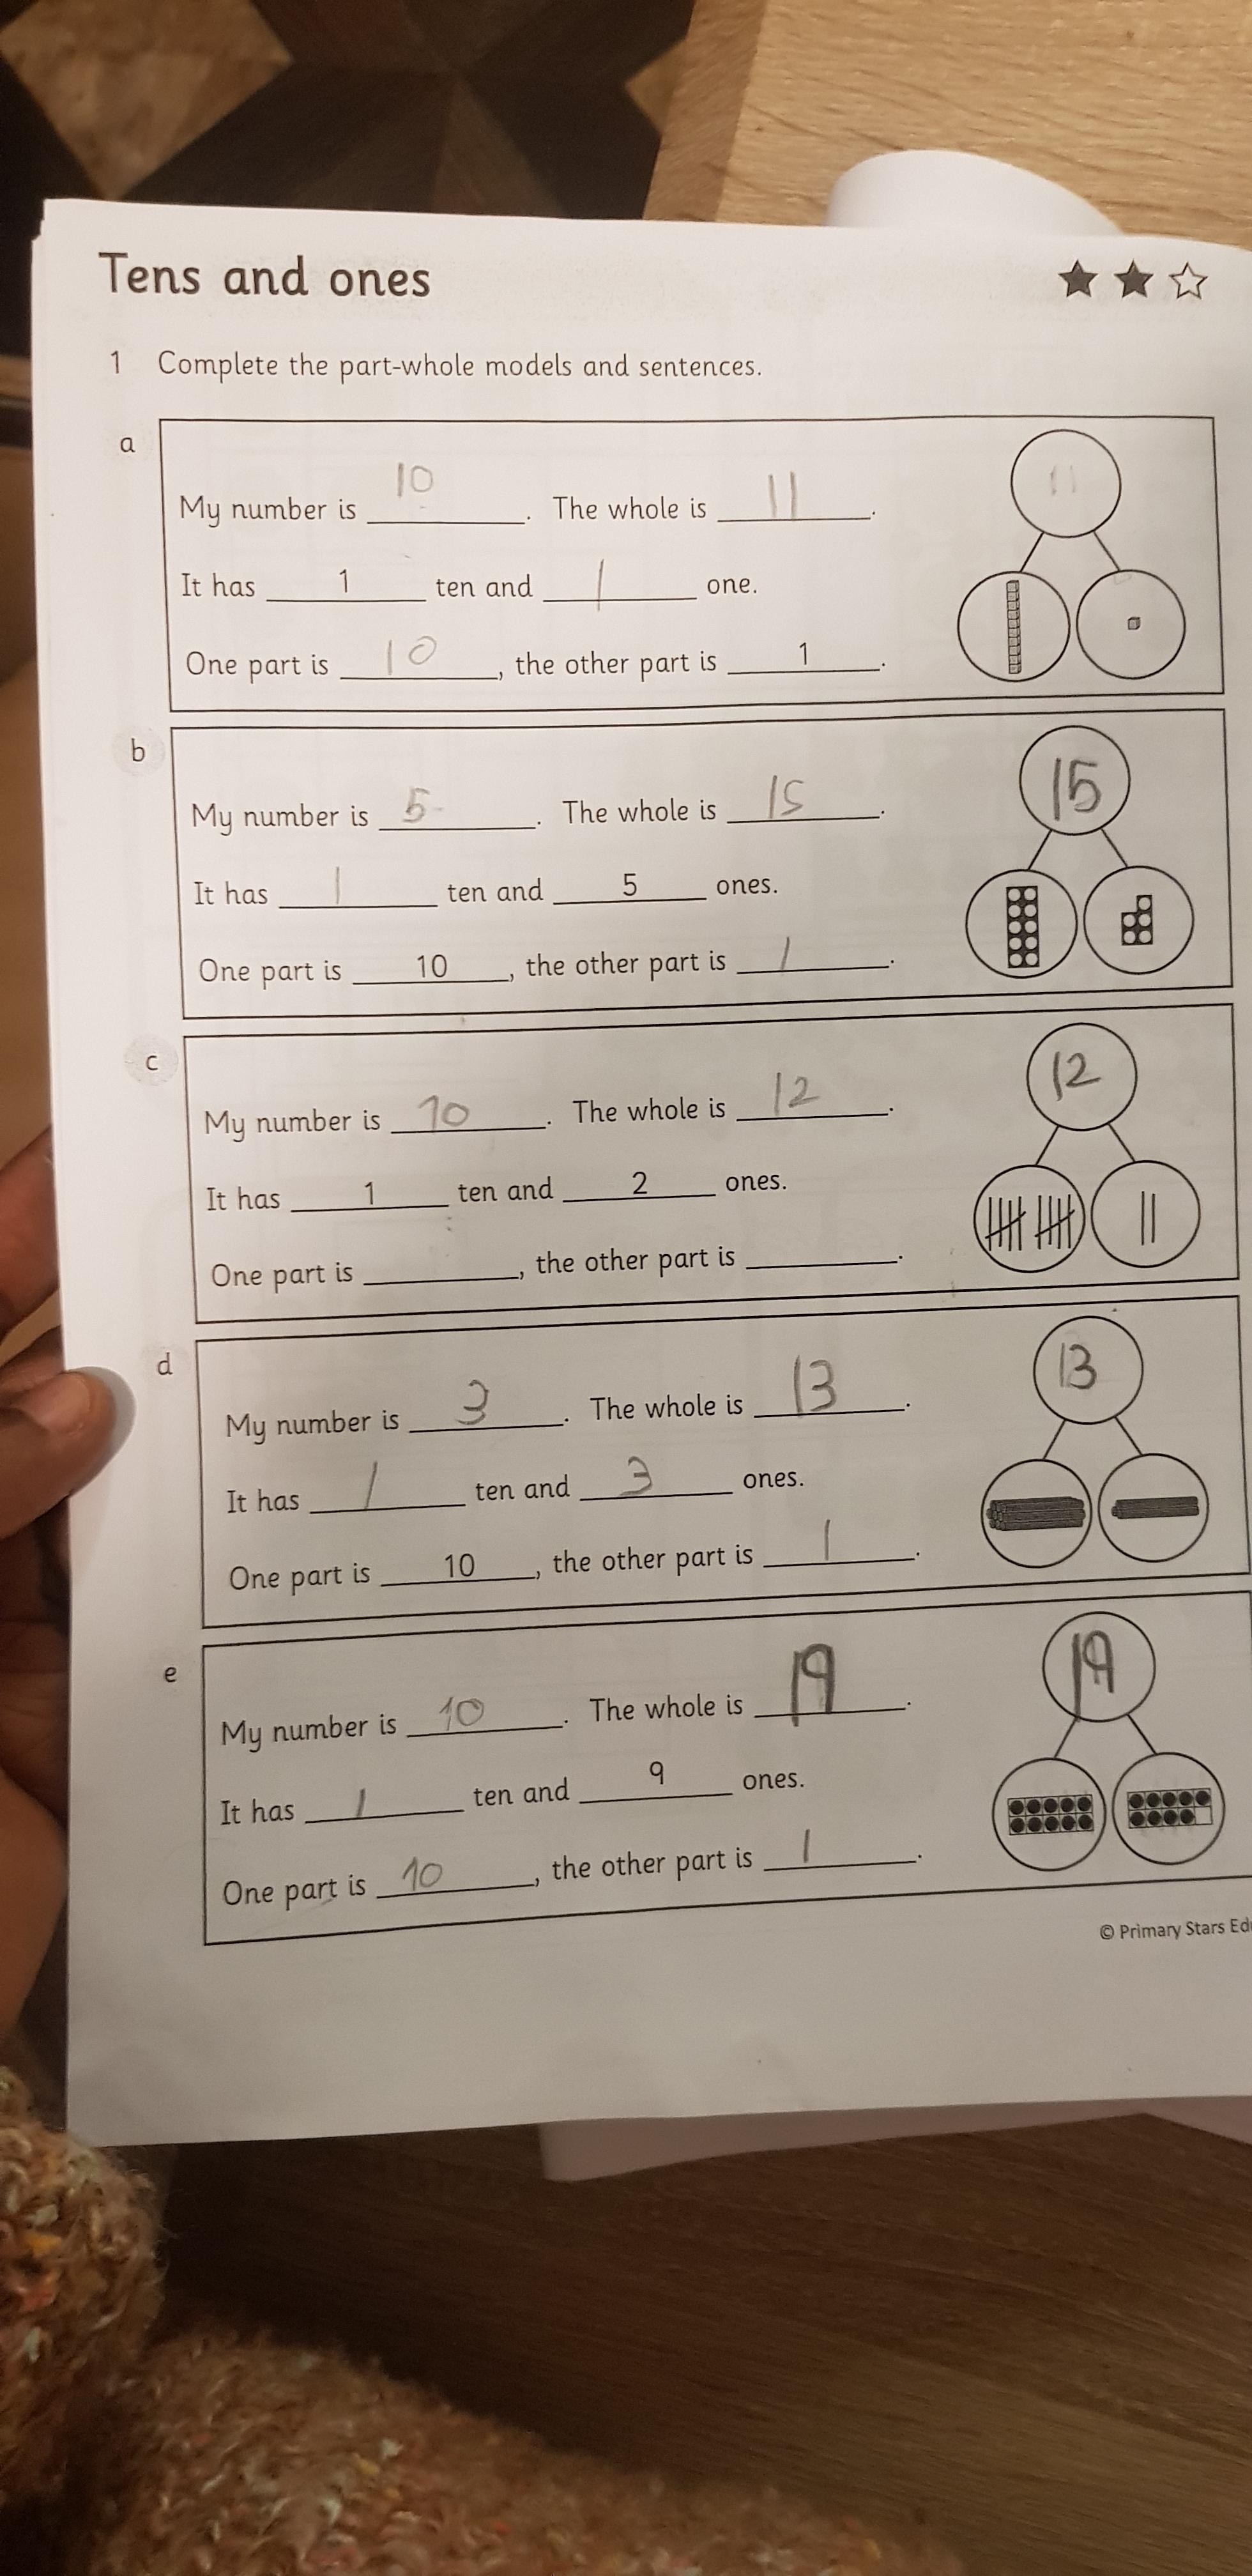 Tens and ones
1 Complete the part-whole models and sentences.
a
My number is 10. The whole is 11.
11
It has 1 ten and 1 one.
One part is 10, the other part is 1.
b
My number is 5. The whole is 15.
15
It has 1 ten and 5 ones.
One part is 10, the other part is 1.
c
My number is 10. The whole is 12.
12
It has 1 ten and 2 ones.
One part is ________, the other part is ________.
d
My number is 3. The whole is 13.
13
It has 1 ten and 3 ones.
One part is 10, the other part is 1.
e
My number is 10. The whole is 19.
19
It has 1 ten and 9 ones.
One part is 10, the other part is 1.
© Primary Stars